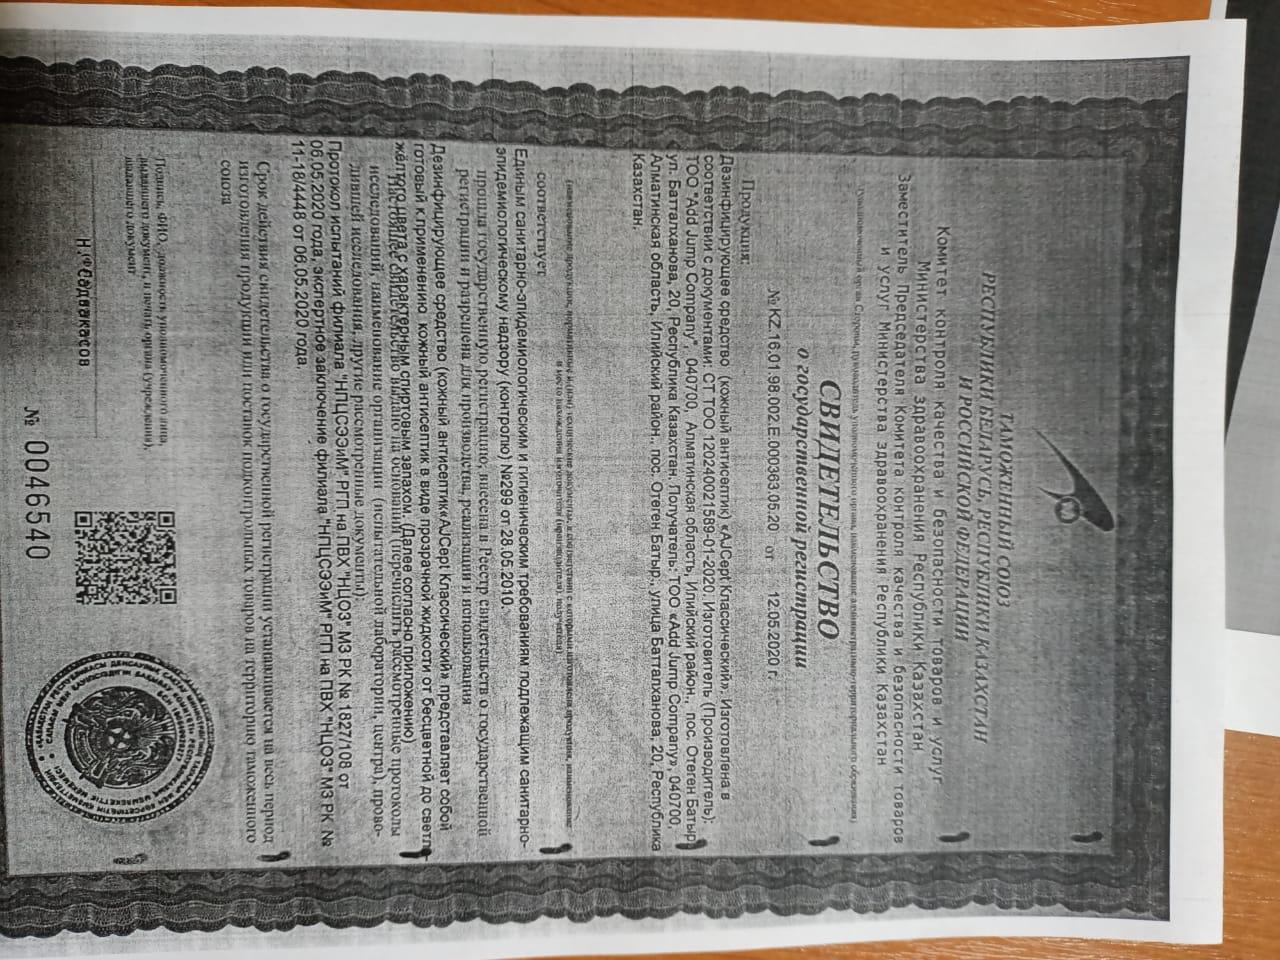 ТАМОЖЕННЫЙ СОЮЗ
РЕСПУБЛИКИ БЕЛАРУСЬ, РЕСПУБЛИКИ КАЗАХСТАН
И РОССИЙСКОЙ ФЕДЕРАЦИИ
Комитет контроля качества и безопасности товаров и услуг
Министерства здравоохранения Республики Казахстан
Заместитель Председателя Комитета контроля качества и безопасности товаров
и услуг Министерства здравоохранения Республики Казахстан
СВИДЕТЕЛЬСТВО
о государственной регистрации
№ KZ.16.01.98.002.E.000363.05.20 от 12.05.2020 г.
Продукция:
Дезинфицирующее средство (кожный антисептик) «AJCept Классический». Изготовлена в
соответствии с документами: СТ ТОО 120240021589-01-2020. Изготовитель (Производитель):
ТОО "Add Jump Company", 040700, Алматинская область, Илийский район., пос. Отеген Батыр
ул. Батталханова, 20, Республика Казахстан. Получатель: ТОО «Add Jump Company», 040700,
Алматинская область, Илийский район., пос. Отеген Батыр., улица Батталханова, 20, Республика
Казахстан.
соответствует
Единым санитарно-эпидемиологическим и гигиеническим требованиям подлежащим санитарно-
эпидемиологическому надзору (контролю) №299 от 28.05.2010.
прошла государственную регистрацию, внесена в Реестр свидетельств о государственной
регистрации и разрешена для производства, реализации и использования
Дезинфицирующее средство (кожный антисептик«AJCept Классический» представляет собой
готовый к применению кожный антисептик в виде прозрачной жидкости от бесцветной до светло-
жёлтого цвета с характерным спиртовым запахом. (Далее согласно приложению)
Настоящее свидетельство выдано на основании (перечислить рассмотренные протоколы
исследований, наименование организации (испытательной лаборатории, центра), прово-
дившей исследования, другие рассмотренные документы):
Протокол испытаний филиала "НПЦСЭЭиМ" РГП на ПВХ "НЦОЗ" МЗ РК № 1827/108 от
06.05.2020 года, экспертное заключение филиала "НПЦСЭЭиМ" РГП на ПВХ "НЦОЗ" МЗ РК №
11-18/4448 от 06.05.2020 года.
Срок действия свидетельства о государственной регистрации устанавливается на весь период
изготовления продукции или поставок подконтрольных товаров на территорию таможенного
союза
Подпись, ФИО, должность уполномоченного лица,
выдавшего документ, и печать органа (учреждения),
выдавшего документ
Н. Садвакасов
№ 0046540